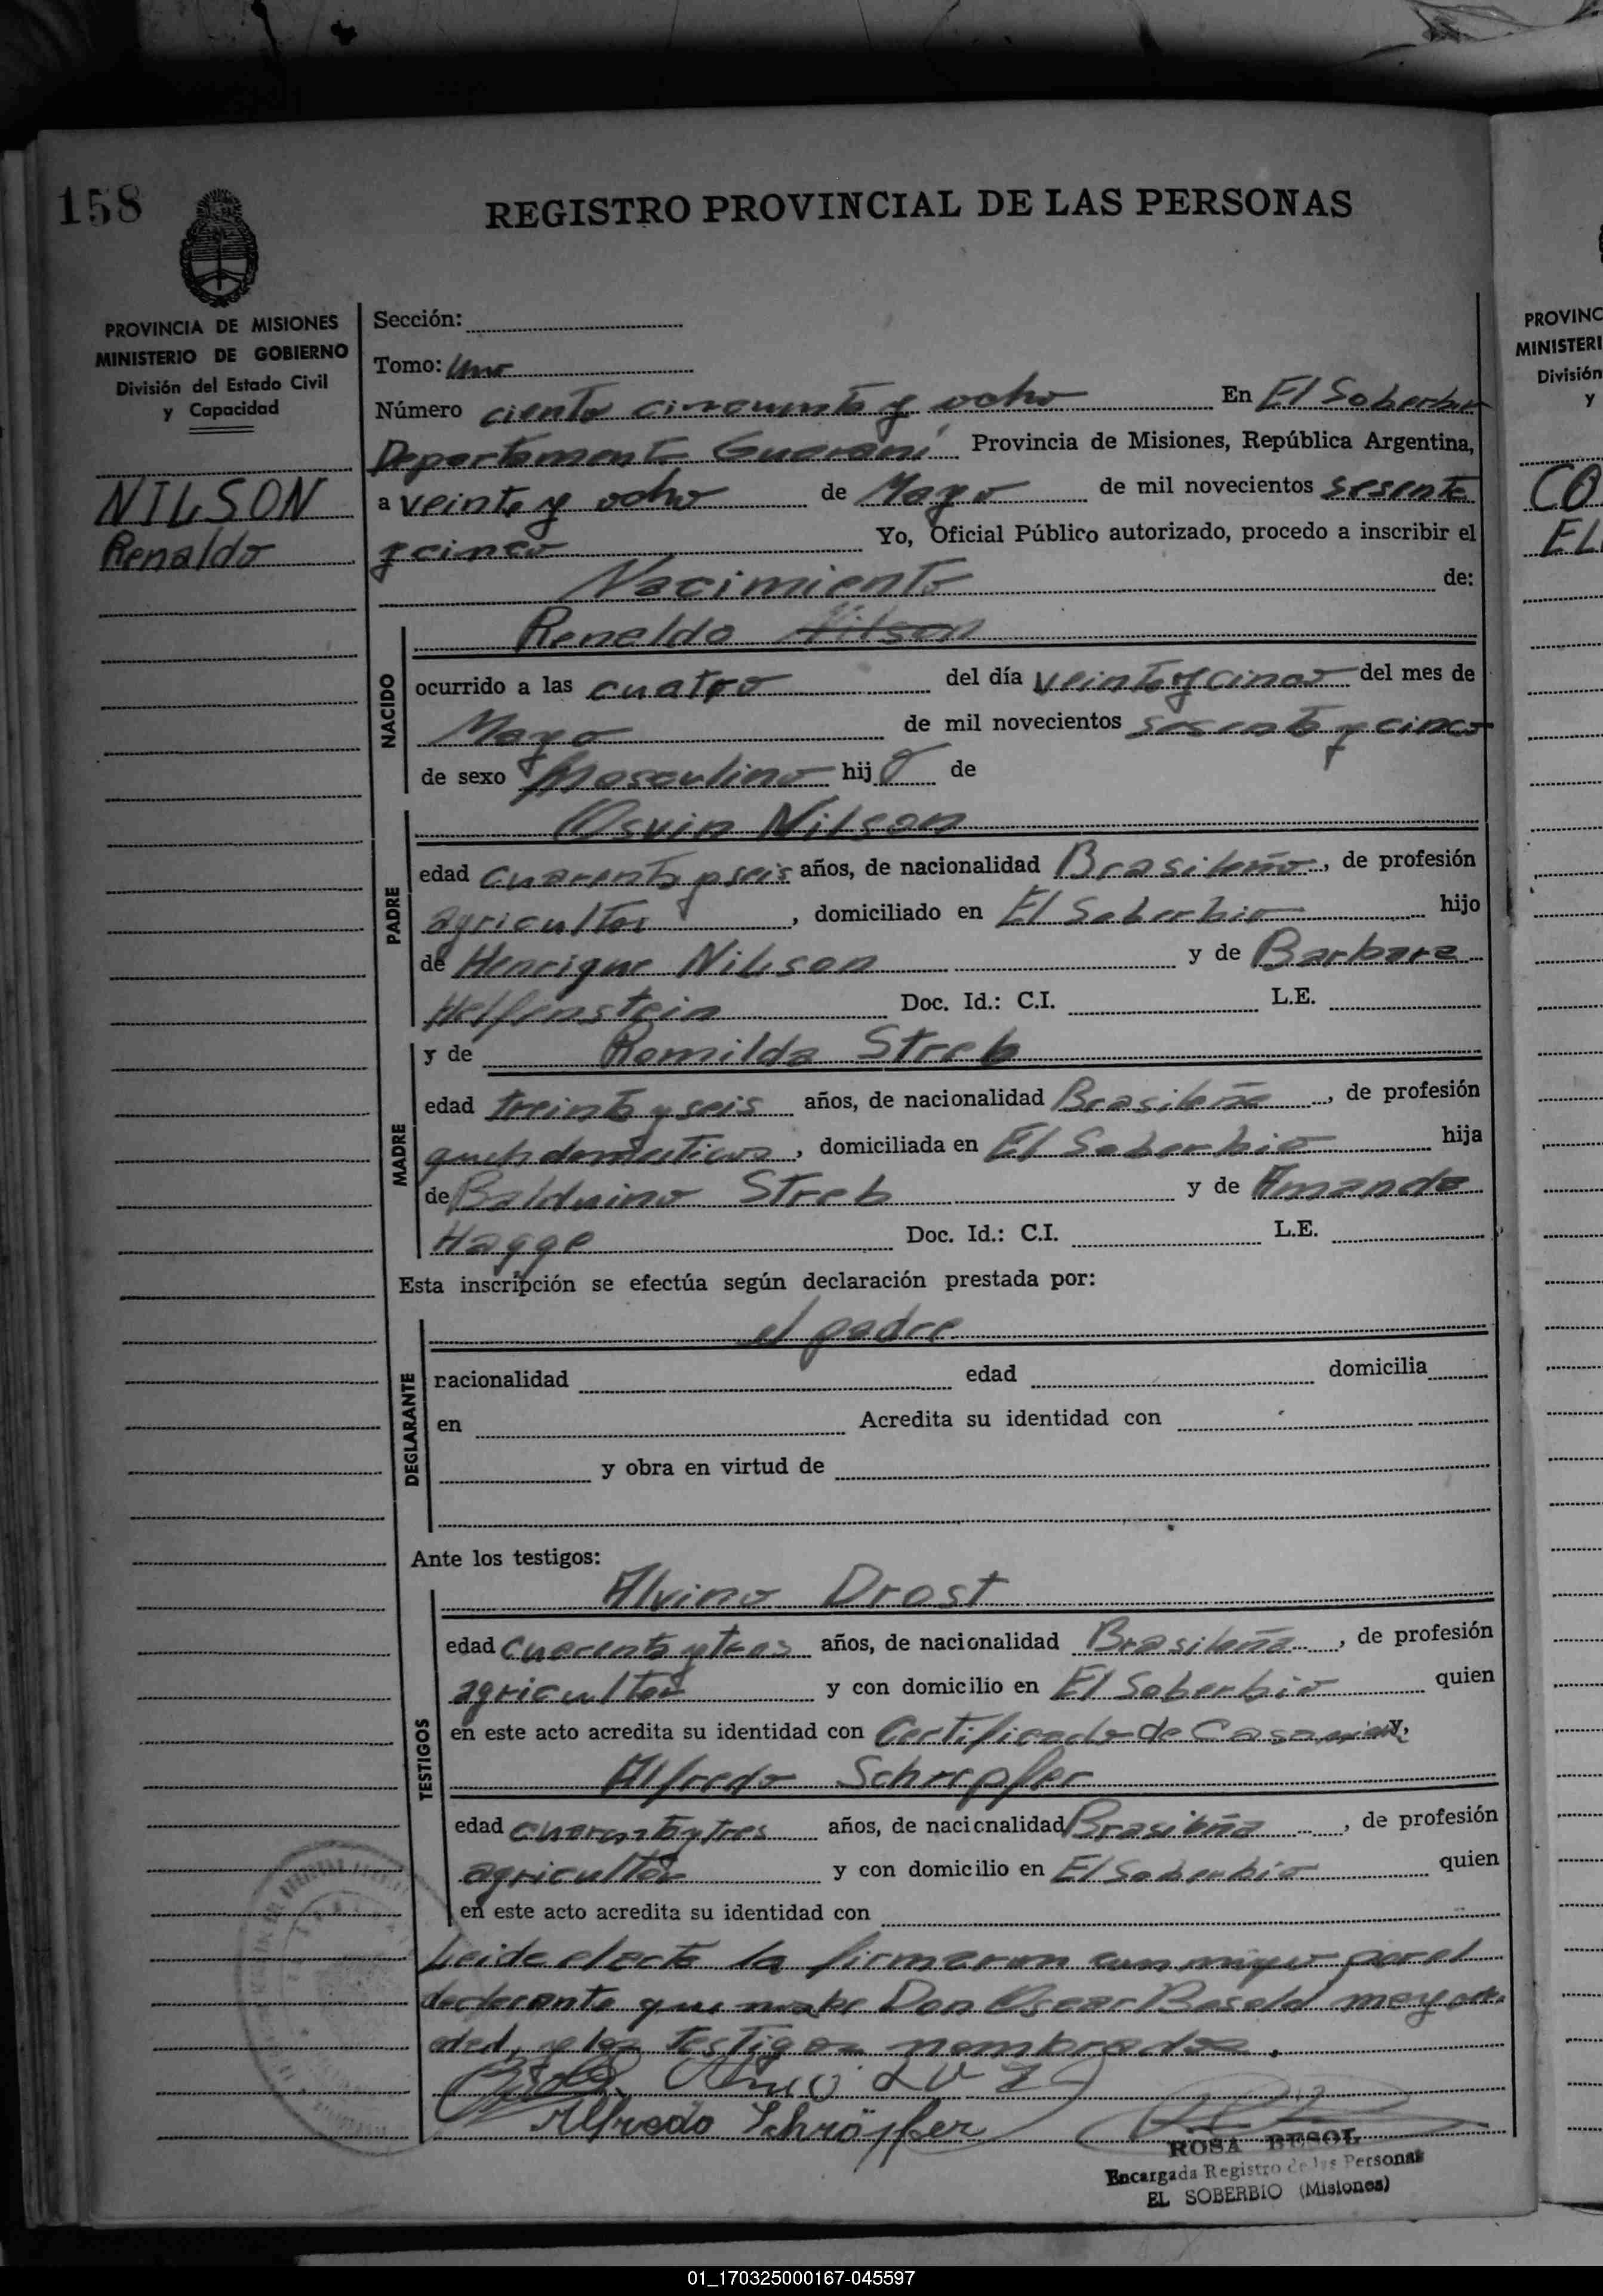 158
REGISTRO PROVINCIAL DE LAS PERSONAS
PROVINCIA DE MISIONES
MINISTERIO DE GOBIERNO
División del Estado Civil
y Capacidad
NILSON
Renaldo
Sección:
Tomo: Uno
Número ciento cincuenta y ocho En El Soberbio
Departamento Guarani Provincia de Misiones, República Argentina,
a veinte y ocho de Mayo de mil novecientos sesenta
y cinco Yo, Oficial Público autorizado, procedo a inscribir el
Nacimiento de:
NACIDO
Renaldo Nilson
ocurrido a las cuatro del día veinte y cinco del mes de
Mayo de mil novecientos sesenta y cinco
de sexo Masculino hijo de
PADRE
Osvin Nilson
edad cuarenta y seis años, de nacionalidad Brasileño, de profesión
agricultor, domiciliado en El Soberbio hijo
de Henrique Nilson y de Barbara
Helfenstein Doc. Id.: C.I. L.E.
MADRE
y de Romilda Streb
edad treinta y seis años, de nacionalidad Brasileña, de profesión
domesticos, domiciliada en El Soberbio hija
de Balduino Streb y de Amanda
Hagge Doc. Id.: C.I. L.E.
Esta inscripción se efectúa según declaración prestada por:
DEGLARANTE
el padre
racionalidad edad domicilia
en Acredita su identidad con
y obra en virtud de
Ante los testigos:
TESTIGOS
Alvino Drost
edad cuarenta y tres años, de nacionalidad Brasileña, de profesión
agricultor y con domicilio en El Soberbio quien
en este acto acredita su identidad con Certificado de Casamien y,
Alfredo Schrepfer
edad cuarenta y tres años, de nacionalidad Brasileña, de profesión
agricultor y con domicilio en El Soberbio quien
en este acto acredita su identidad con
Leida el acta la firmaron conmigo por el
declarante que no sabe Don Oscar
edad, y los testigos nombrados.
Alfredo Schröpfer
ROSA BESOL
Encargada Registro de las Personas
EL SOBERBIO (Misiones)
PROVINC
MINISTERI
División
y
CO
EL
01_170325000167-045597